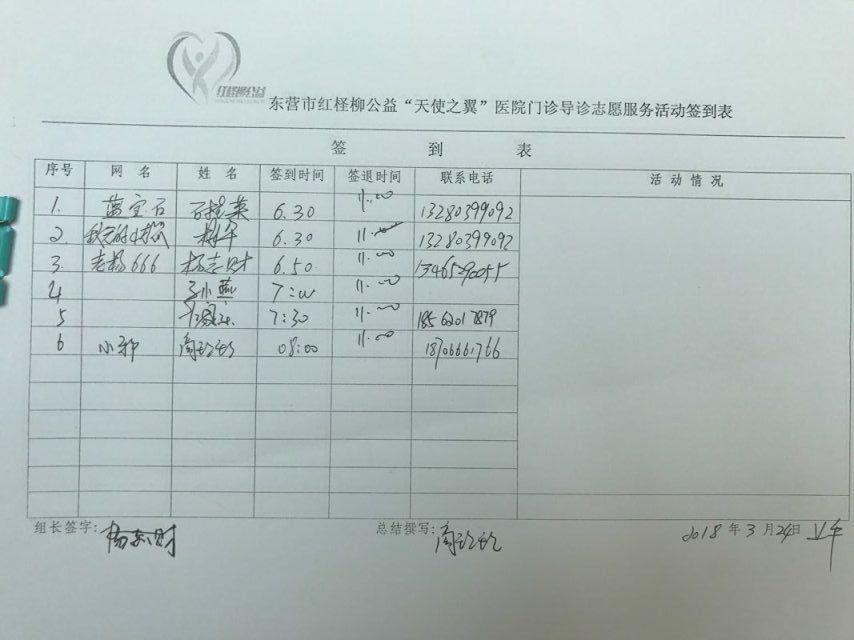 红柽柳公益
东营市红柽柳公益“天使之翼”医院门诊导诊志愿服务活动签到表
签 到 表
序号 网 名 姓 名 签到时间 签退时间 联系电话 活 动 情 况
1. 蓝宝石 6.30 11.00 13280399092
2. 6.30 11.00 13280399092
3 老杨666 杨志财 6.50 11.00 13465290055
4 小燕 7:00 11.00
5 7:30 11.00 18562017879
6 小郭 08:00 11.00 18706661766
组长签字: 杨志财 总结撰写: 2018年3月24日 上午